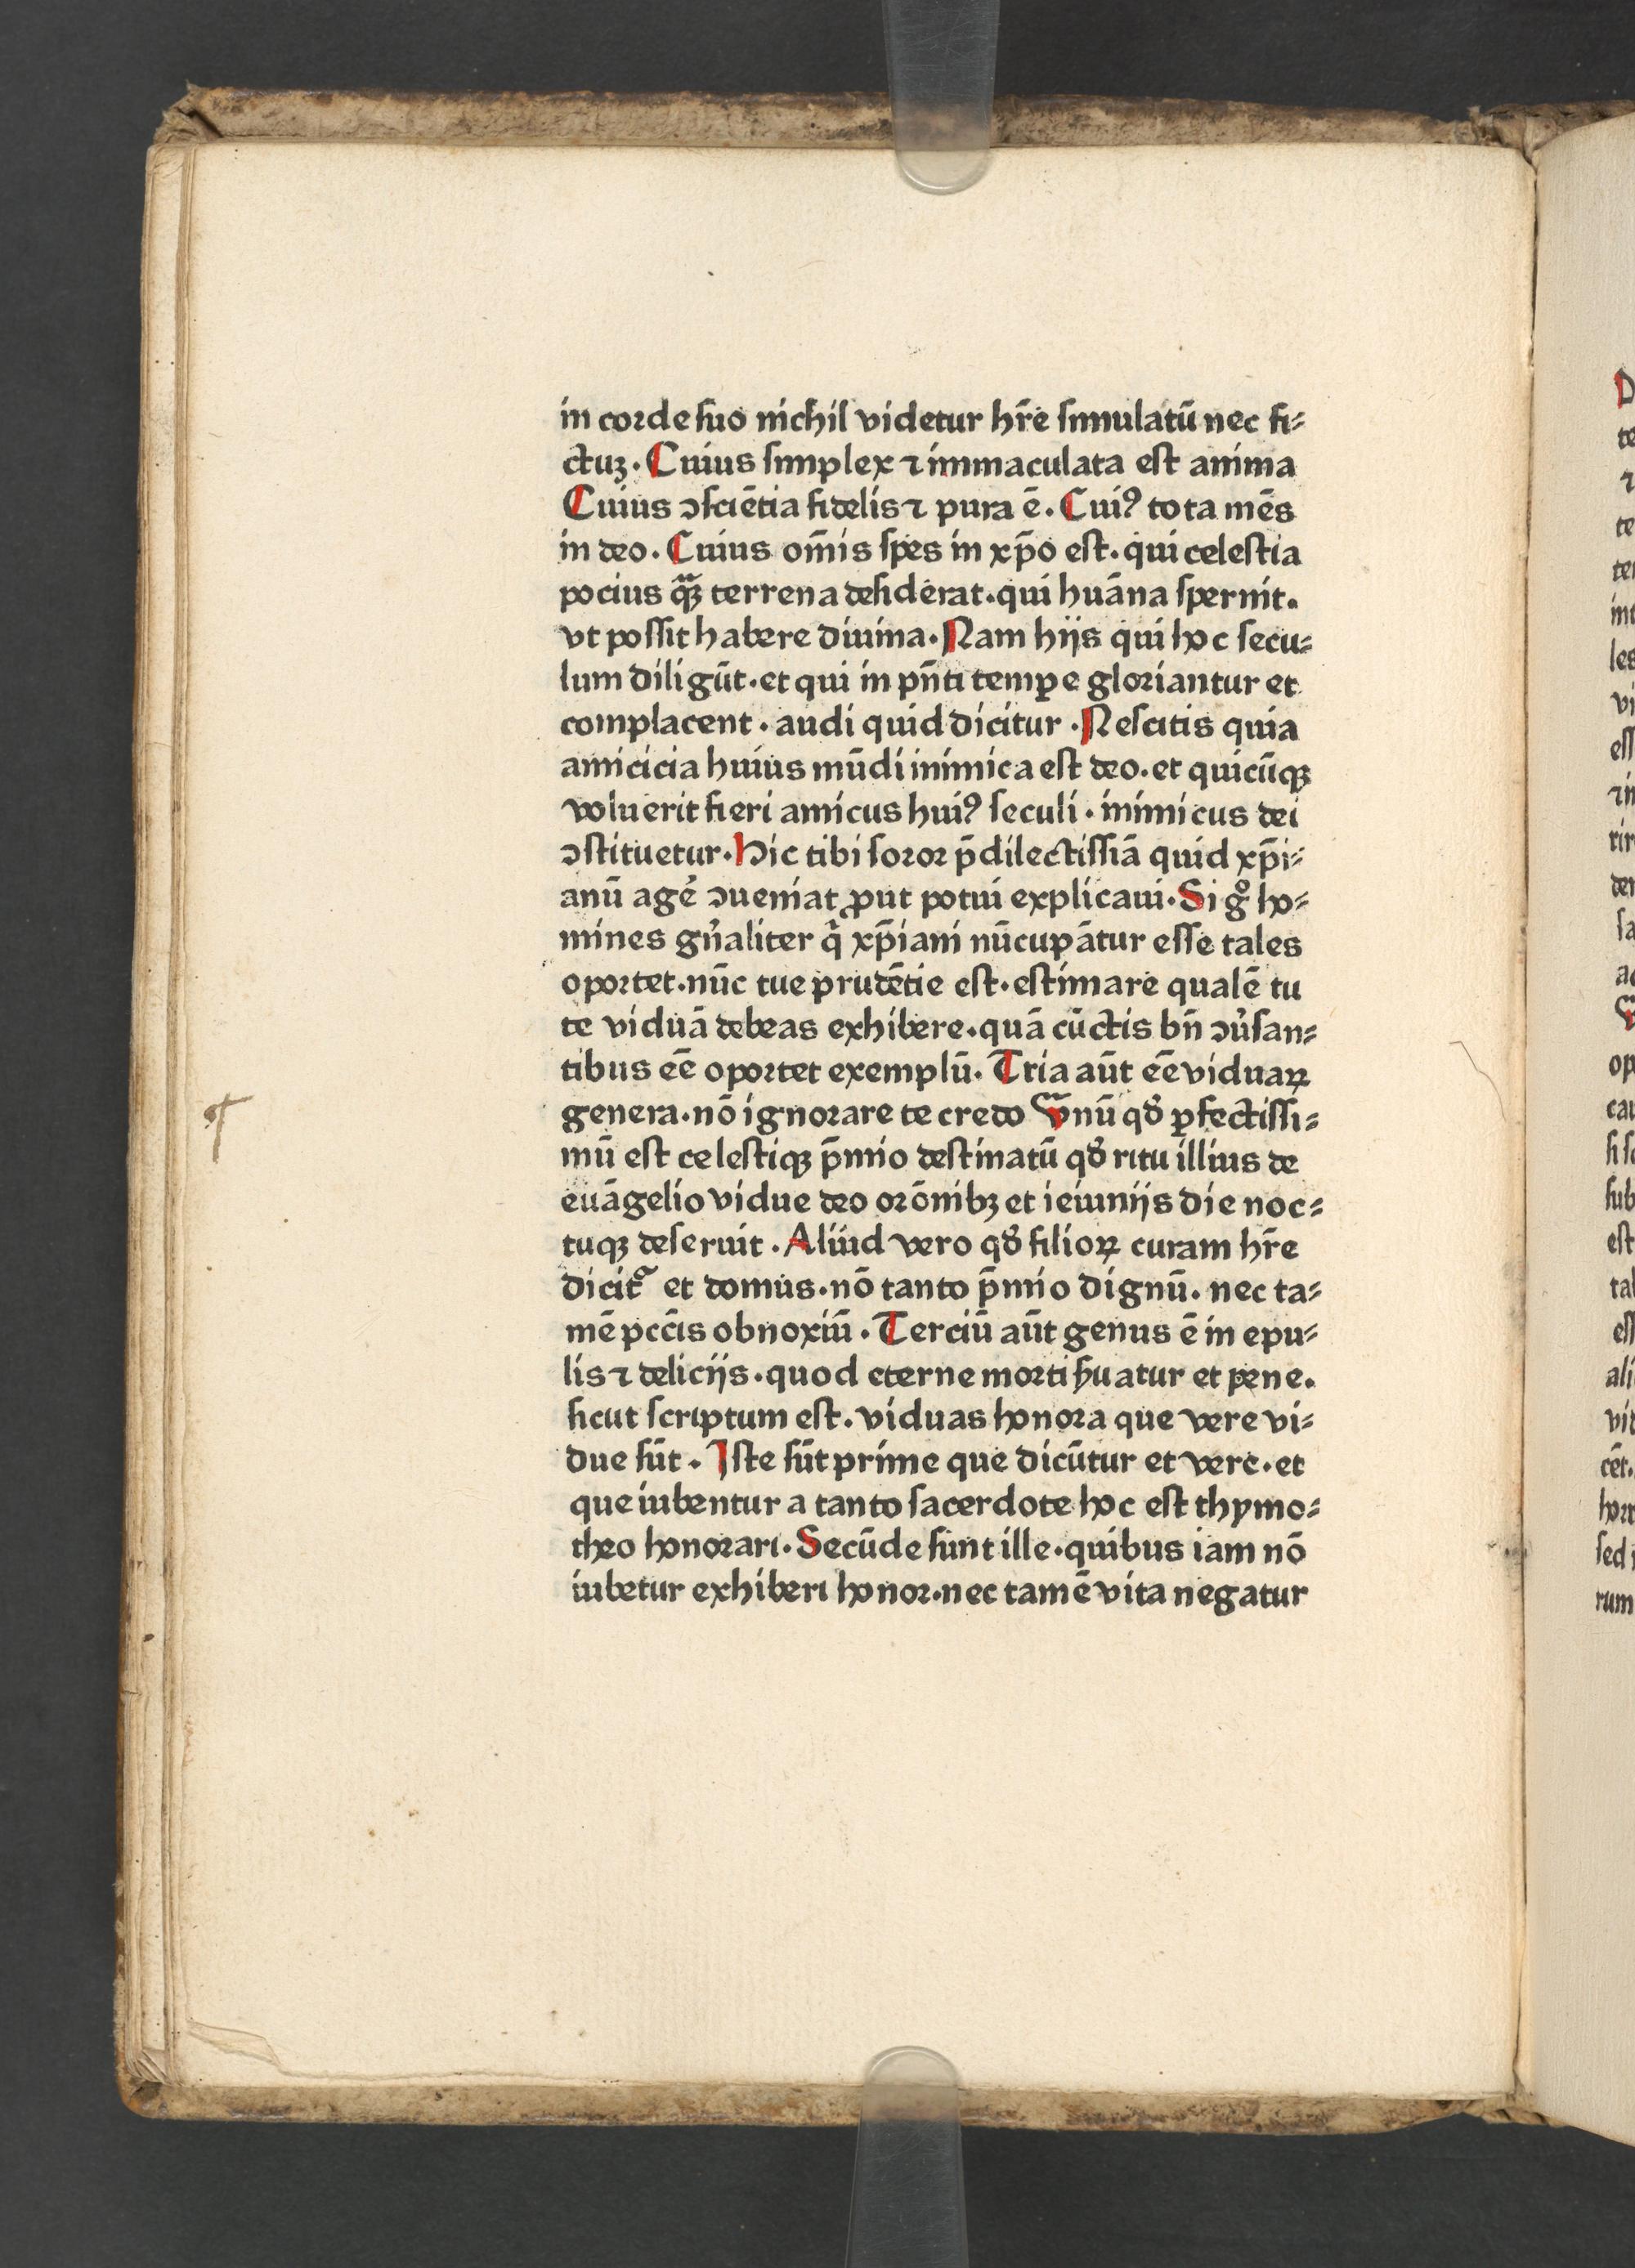 in corde suo nichil videtur hr̄e simulatū nec fi⸗
ctuꝫ. Cuius simplex ⁊ immaculata est anima
Cuius ↄsciētia fidelis ⁊ pura ē. Cuiꝰ tota mēs
in deo. Cuius om̄is spes in xp̄o est. qui celestia
pocius qͣꝫ terrena desiderat. qui huāna spernit.
vt possit habere diuina. Nam hijs qui hoc secu⸗
lum diligūt. et qui in pn̄ti temꝑe gloriantur et
complacent. audi quid dicitur. Nescitis quia
amicicia huius mūdi inimica est deo. et quicūqꝫ
voluerit fieri amicus huiꝰ seculi. inimicus dei
ↄstituetur. Hic tibi soror p̄dilectissiā quid xp̄i⸗
anū age᷒ ↄueniat ꝓut potui explicaui. Si gͦ ho⸗
mines gn̄aliter qͥ xp̄iani nūcupātur esse tales
oportet. nūc tue prudētie est. estimare qualē tu
te viduā debeas exhibere. quā cūctis bn̄ ↄu᷒san⸗
tibus eē oportet exemplū. Tria aūt eē viduaꝝ
genera. nō ignorare te credo Vnū qd̓ ꝑfectissi⸗
mū est celestiqꝫ p̄mio destinatū qd̓ ritu illius de
euāgelio vidue deo orōnibꝫ et ieiunijs die noc⸗
tuqꝫ deseruit. Aliud vero qd̓ filioꝝ curam hr̄e
dicit᷑ et domus. nō tanto p̄mio dignū. nec ta⸗
mē pcc̄is obnoxiū. Terciū aūt genus ē in epu⸗
lis ⁊ delicijs. quod eterne morti ẜuatur et pene.
sicut scriptum est. viduas honora que vere vi⸗
due sūt. Iste sūt prime que dicūtur et vere. et
que iubentur a tanto sacerdote hoc est thymo⸗
theo honorari. Secūde sunt ille. quibus iam nō
iubetur exhiberi honor. nec tamē vita negatur